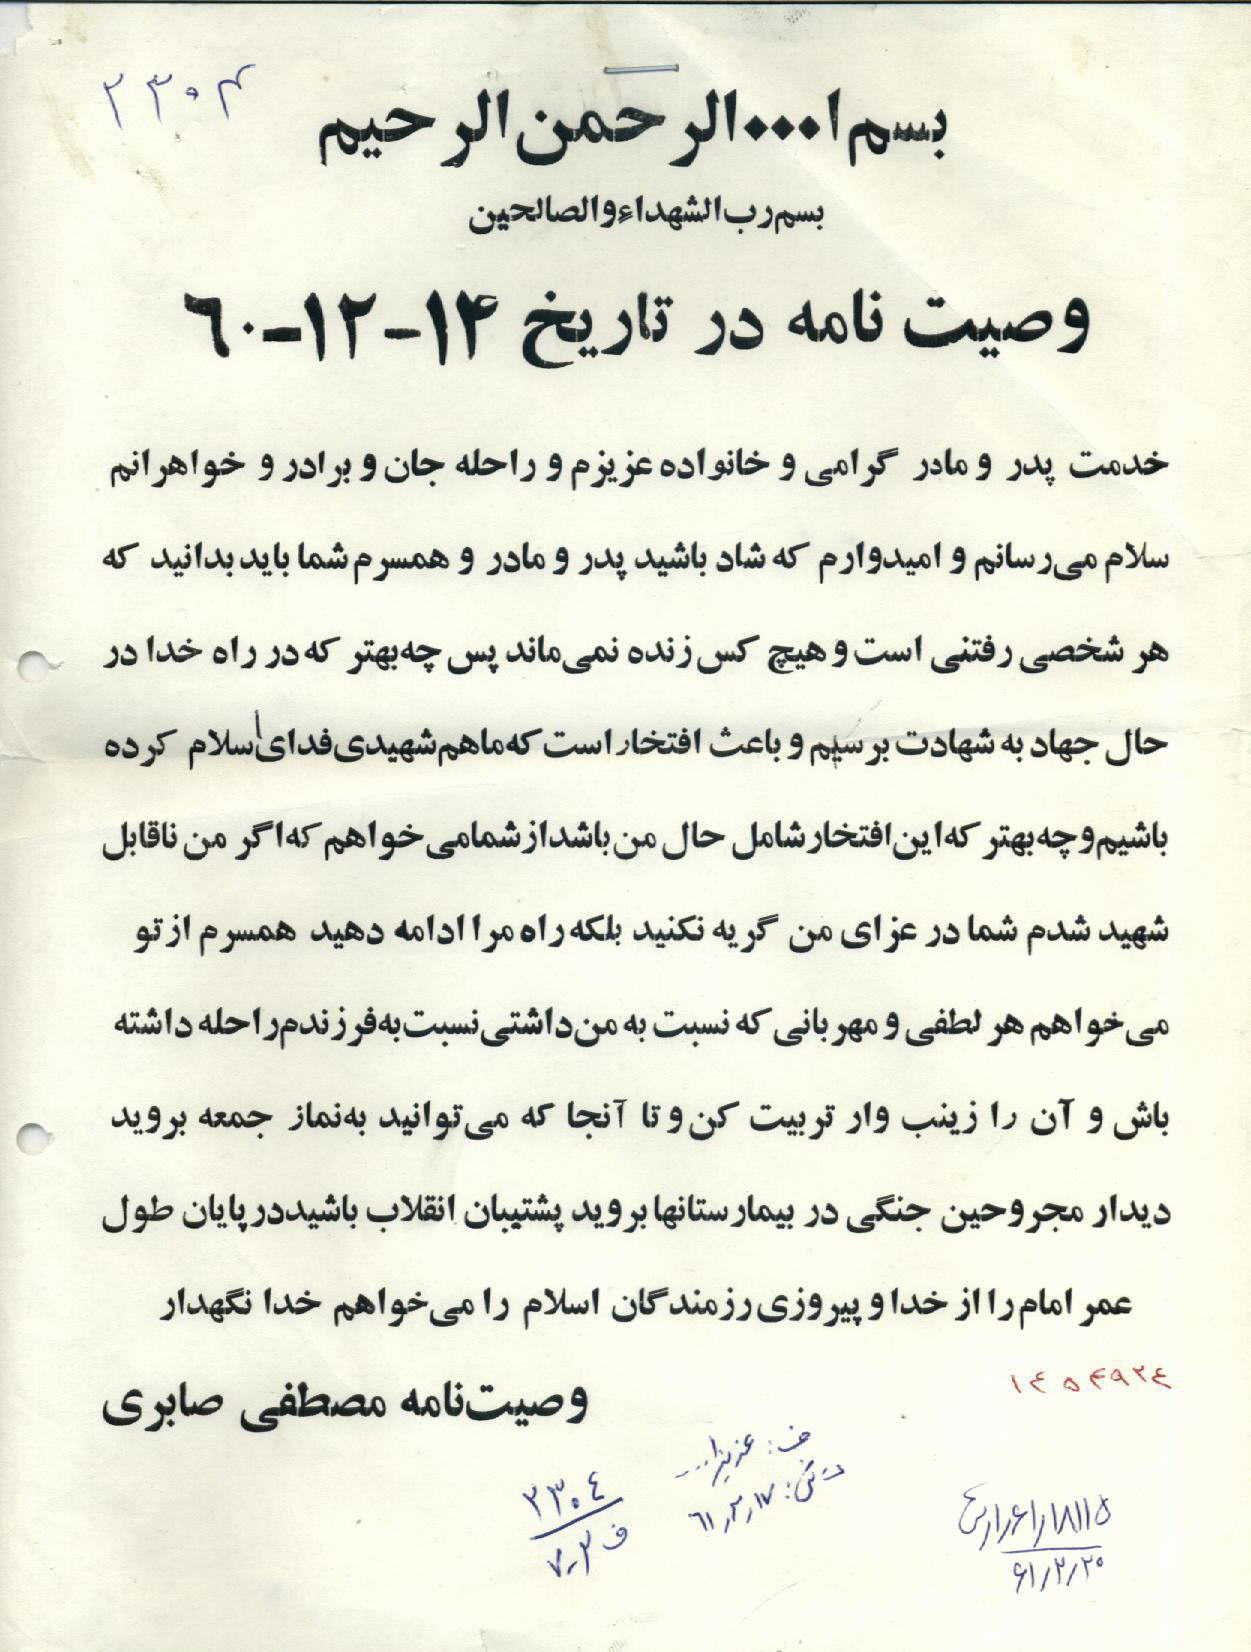 ۲۳۰۴
بسم ا...الرحمن الرحیم
بسم رب الشهداء والصالحین
وصیت نامه در تاریخ ۱۴-۱۲-۶۰
خدمت پدر و مادر گرامی و خانواده عزیزم و راحله جان و برادر و خواهرانم
سلام می‌رسانم و امیدوارم که شاد باشید پدر و مادر و همسرم شما باید بدانید که
هر شخصی رفتنی است و هیچ کس زنده نمی‌ماند پس چه بهتر که در راه خدا در
حال جهاد به شهادت برسیم و باعث افتخار است که ما هم شهیدی فدای اسلام کرده
باشیم و چه بهتر که این افتخار شامل حال من باشد از شما می خواهم که اگر من ناقابل
شهید شدم شما در عزای من گریه نکنید بلکه راه مرا ادامه دهید همسرم از تو
می‌خواهم هر لطفی و مهربانی که نسبت به من داشتی نسبت به فرزندم راحله داشته
باش و آن را زینب وار تربیت کن و تا آنجا که می‌توانید به نماز جمعه بروید
دیدار مجروحین جنگی در بیمارستانها بروید پشتیبان انقلاب باشید در پایان طول
عمر امام را از خدا و پیروزی رزمندگان اسلام را می‌خواهم خدا نگهدار
۱۴۵۴۹۲۴
وصیت‌نامه مصطفی صابری
ف:
۶۱٫۲٫۱۷
۲۳۰۴
ف ۷٫۳
۶۱/۲/۲۰